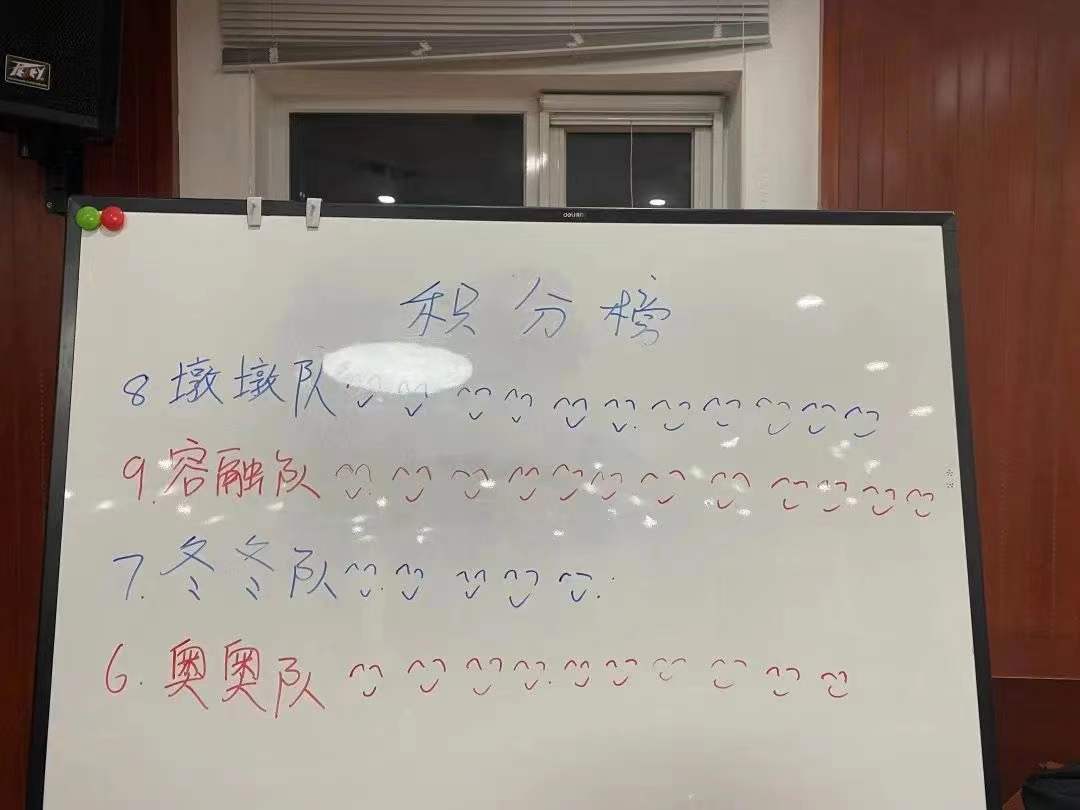 deli
积分榜
8 墩墩队
9.容融队
7.冬冬队
6.奥奥队